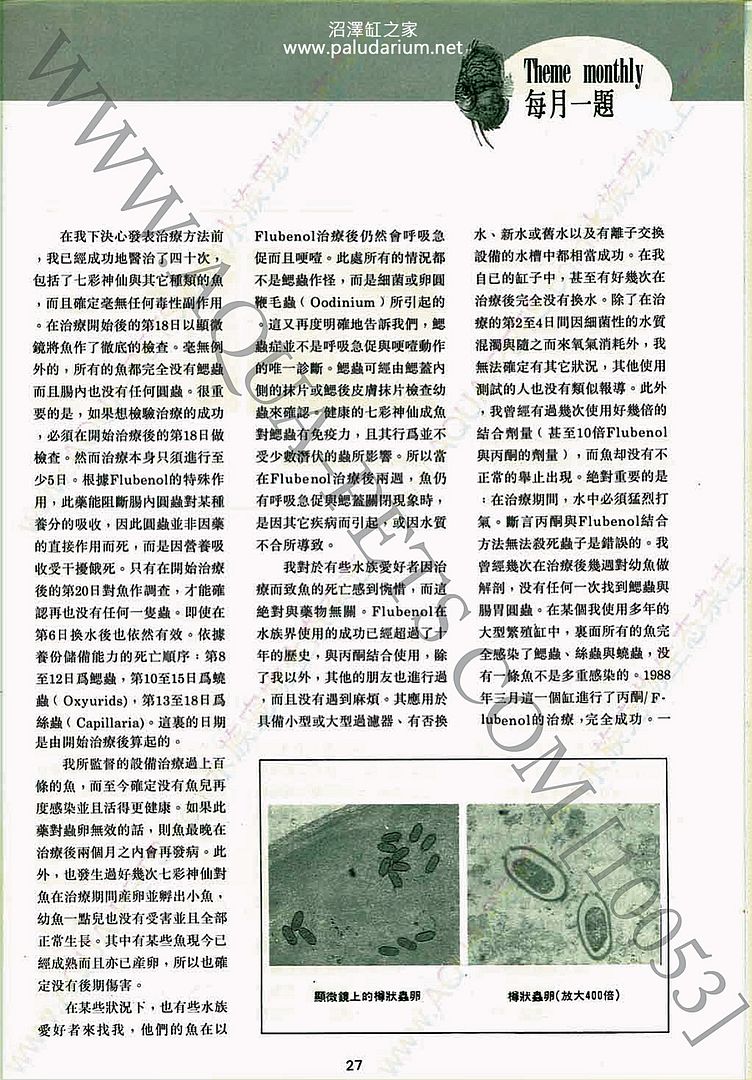 沼澤缸之家
www.paludarium.net
Theme monthly
每月一題
在我下決心發表治療方法前
，我已經成功地醫治了四十次，
包括了七彩神仙與其它種類的魚
，而且確定毫無任何毒性副作用
。在治療開始後的第18日以顯微
鏡將魚作了徹底的檢查。毫無例
外的，所有的魚都完全没有鰓蟲
而且腸内也没有任何圓蟲。很重
要的是，如果想檢驗治療的成功
，必須在開始治療後的第18日做
檢查。然而治療本身只須進行至
少5日。根據Flubenol的特殊作
用，此藥能阻斷腸内圓蟲對某種
養分的吸收，因此圓蟲並非因藥
的直接作用而死，而是因營養吸
收受干擾餓死。只有在開始治療
後的第20日對魚作調查，才能確
認再也没有任何一隻蟲。即使在
第6日换水後也依然有效。依據
養份儲備能力的死亡順序：第8
至12日爲鰓蟲，第10至15日爲蟯
蟲（Oxyurids)，第13至18日爲
絲蟲（Capillaria)。這裏的日期
是由開始治療後算起的。
我所監督的設備治療過上百
條的魚，而至今確定没有魚兒再
度感染並且活得更健康。如果此
藥對蟲卵無效的話，則魚最晚在
治療後兩個月之内會再發病。此
外，也發生過好幾次七彩神仙對
魚在治療期間産卵並孵出小魚，
幼魚一點兒也没有受害並且全部
正常生長。其中有某些魚現今已
經成熟而且亦已産卵，所以也確
定没有後期傷害。
在某些狀況下，也有些水族
愛好者來找我，他們的魚在以
Flubenol治療後仍然會呼吸急
促而且哽噎。此處所有的情況都
不是鰓蟲作怪，而是細菌或卵圓
鞭毛蟲（Oodinium）所引起的
。這又再度明確地告訴我們，鰓
蟲症並不是呼吸急促與哽噎動作
的唯一診斷。鰓蟲可經由鰓蓋内
側的抹片或鰓後皮膚抹片檢查幼
蟲來確認。健康的七彩神仙成魚
對鰓蟲有免疫力，且其行爲並不
受少數潛伏的蟲所影響。所以當
在Flubenol治療後兩週，魚仍
有呼吸急促與鰓蓋關閉現象時，
是因其它疾病而引起，或因水質
不合所導致。
我對於有些水族愛好者因治
療而致魚的死亡感到惋惜，而這
絶對與藥物無關。Flubenol在
水族界使用的成功已經超過了十
年的歷史，與丙酮結合使用，除
了我以外，其他的朋友也進行過
，而且没有遇到麻煩。其應用於
具備小型或大型過濾器、有否换
水、新水或舊水以及有離子交換
設備的水槽中都相當成功。在我
自己的缸子中，甚至有好幾次在
治療後完全没有换水。除了在治
療的第2至4日間因細菌性的水質
混濁與隨之而來氧氣消耗外，我
無法確定有其它狀況，其他使用
測試的人也没有類似報導。此外
，我曾經有過幾次使用好幾倍的
結合劑量（甚至10倍Flubenol
與丙酮的劑量），而魚却没有不
正常的舉止出現。絶對重要的是
：在治療期間，水中必須猛烈打
氣。斷言丙酮與Flubenol結合
方法無法殺死蟲子是錯誤的。我
曾經幾次在治療後幾週對幼魚做
解剖，没有任何一次找到鰓蟲與
腸胃圓蟲。在某個我使用多年的
大型繁殖缸中，裏面所有的魚完
全感染了鰓蟲、絲蟲與蟯蟲，没
有一條魚不是多重感染的。1988
年三月這一個缸進行了丙酮/F-
lubenol的治療，完全成功。一
顯微鏡上的樽狀蟲卵
樽狀蟲卵(放大400倍)
27
WWW.AQUA-PETS.COM [110053]